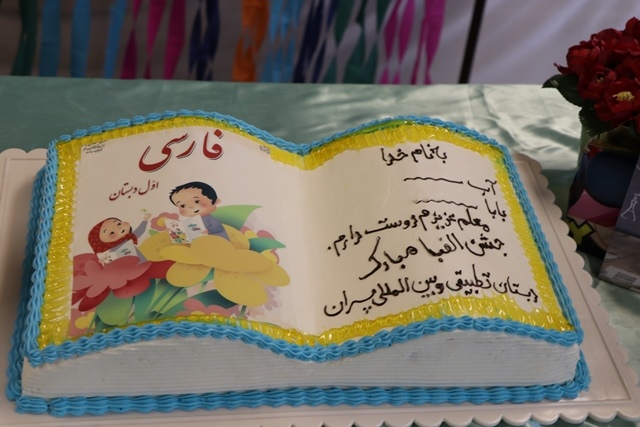 فارسی
اول دبستان
بانام خدا
آب
بابا
معلم عزیزم دوستت دارم.
جشن الفبا مبارک
دبستان تطبیقی و بین المللی پسران